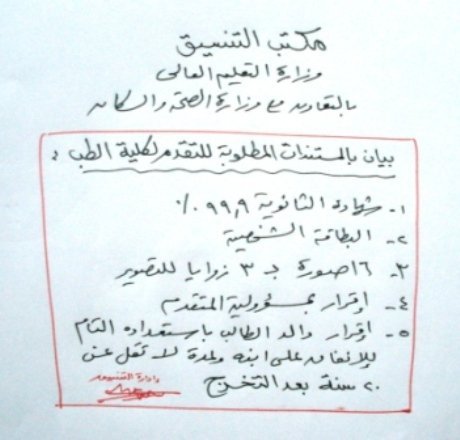 مكتب التنسيق
وزارة التعليم العالى
بالتعاون مع وزارة الصحة والسكان
بيان بالمستندات المطلوبة للتقدم لكلية الطب :
١- شهادة الثانوية ٩٩,٩ ٪
٢- البطاقة الشخصية
٣- ١٦ صورة بـ ٣ زوايا للتصوير
٤- إقرار بمسئولية المتقدم
٥- إقرار والد الطالب باستعداده التام
للإنفاق على ابنه ولمدة لا تقل عن
٢٠ سنة بعد التخرج
إدارة التنسيق